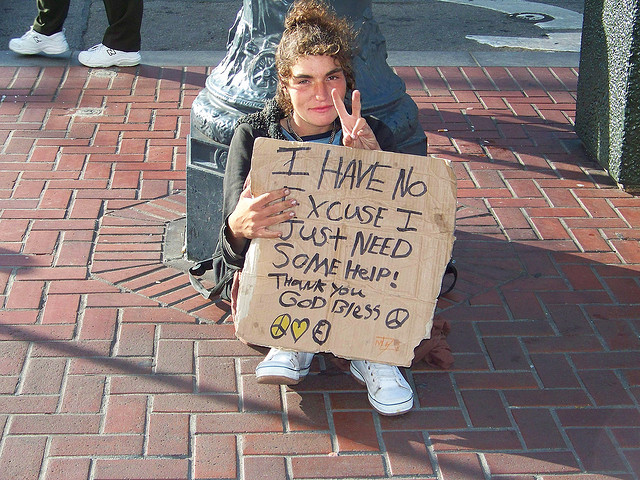 I HAVE NO
EXCUSE I
JUST NEED
SOME HElP!
THANK YOU
GOD Bless